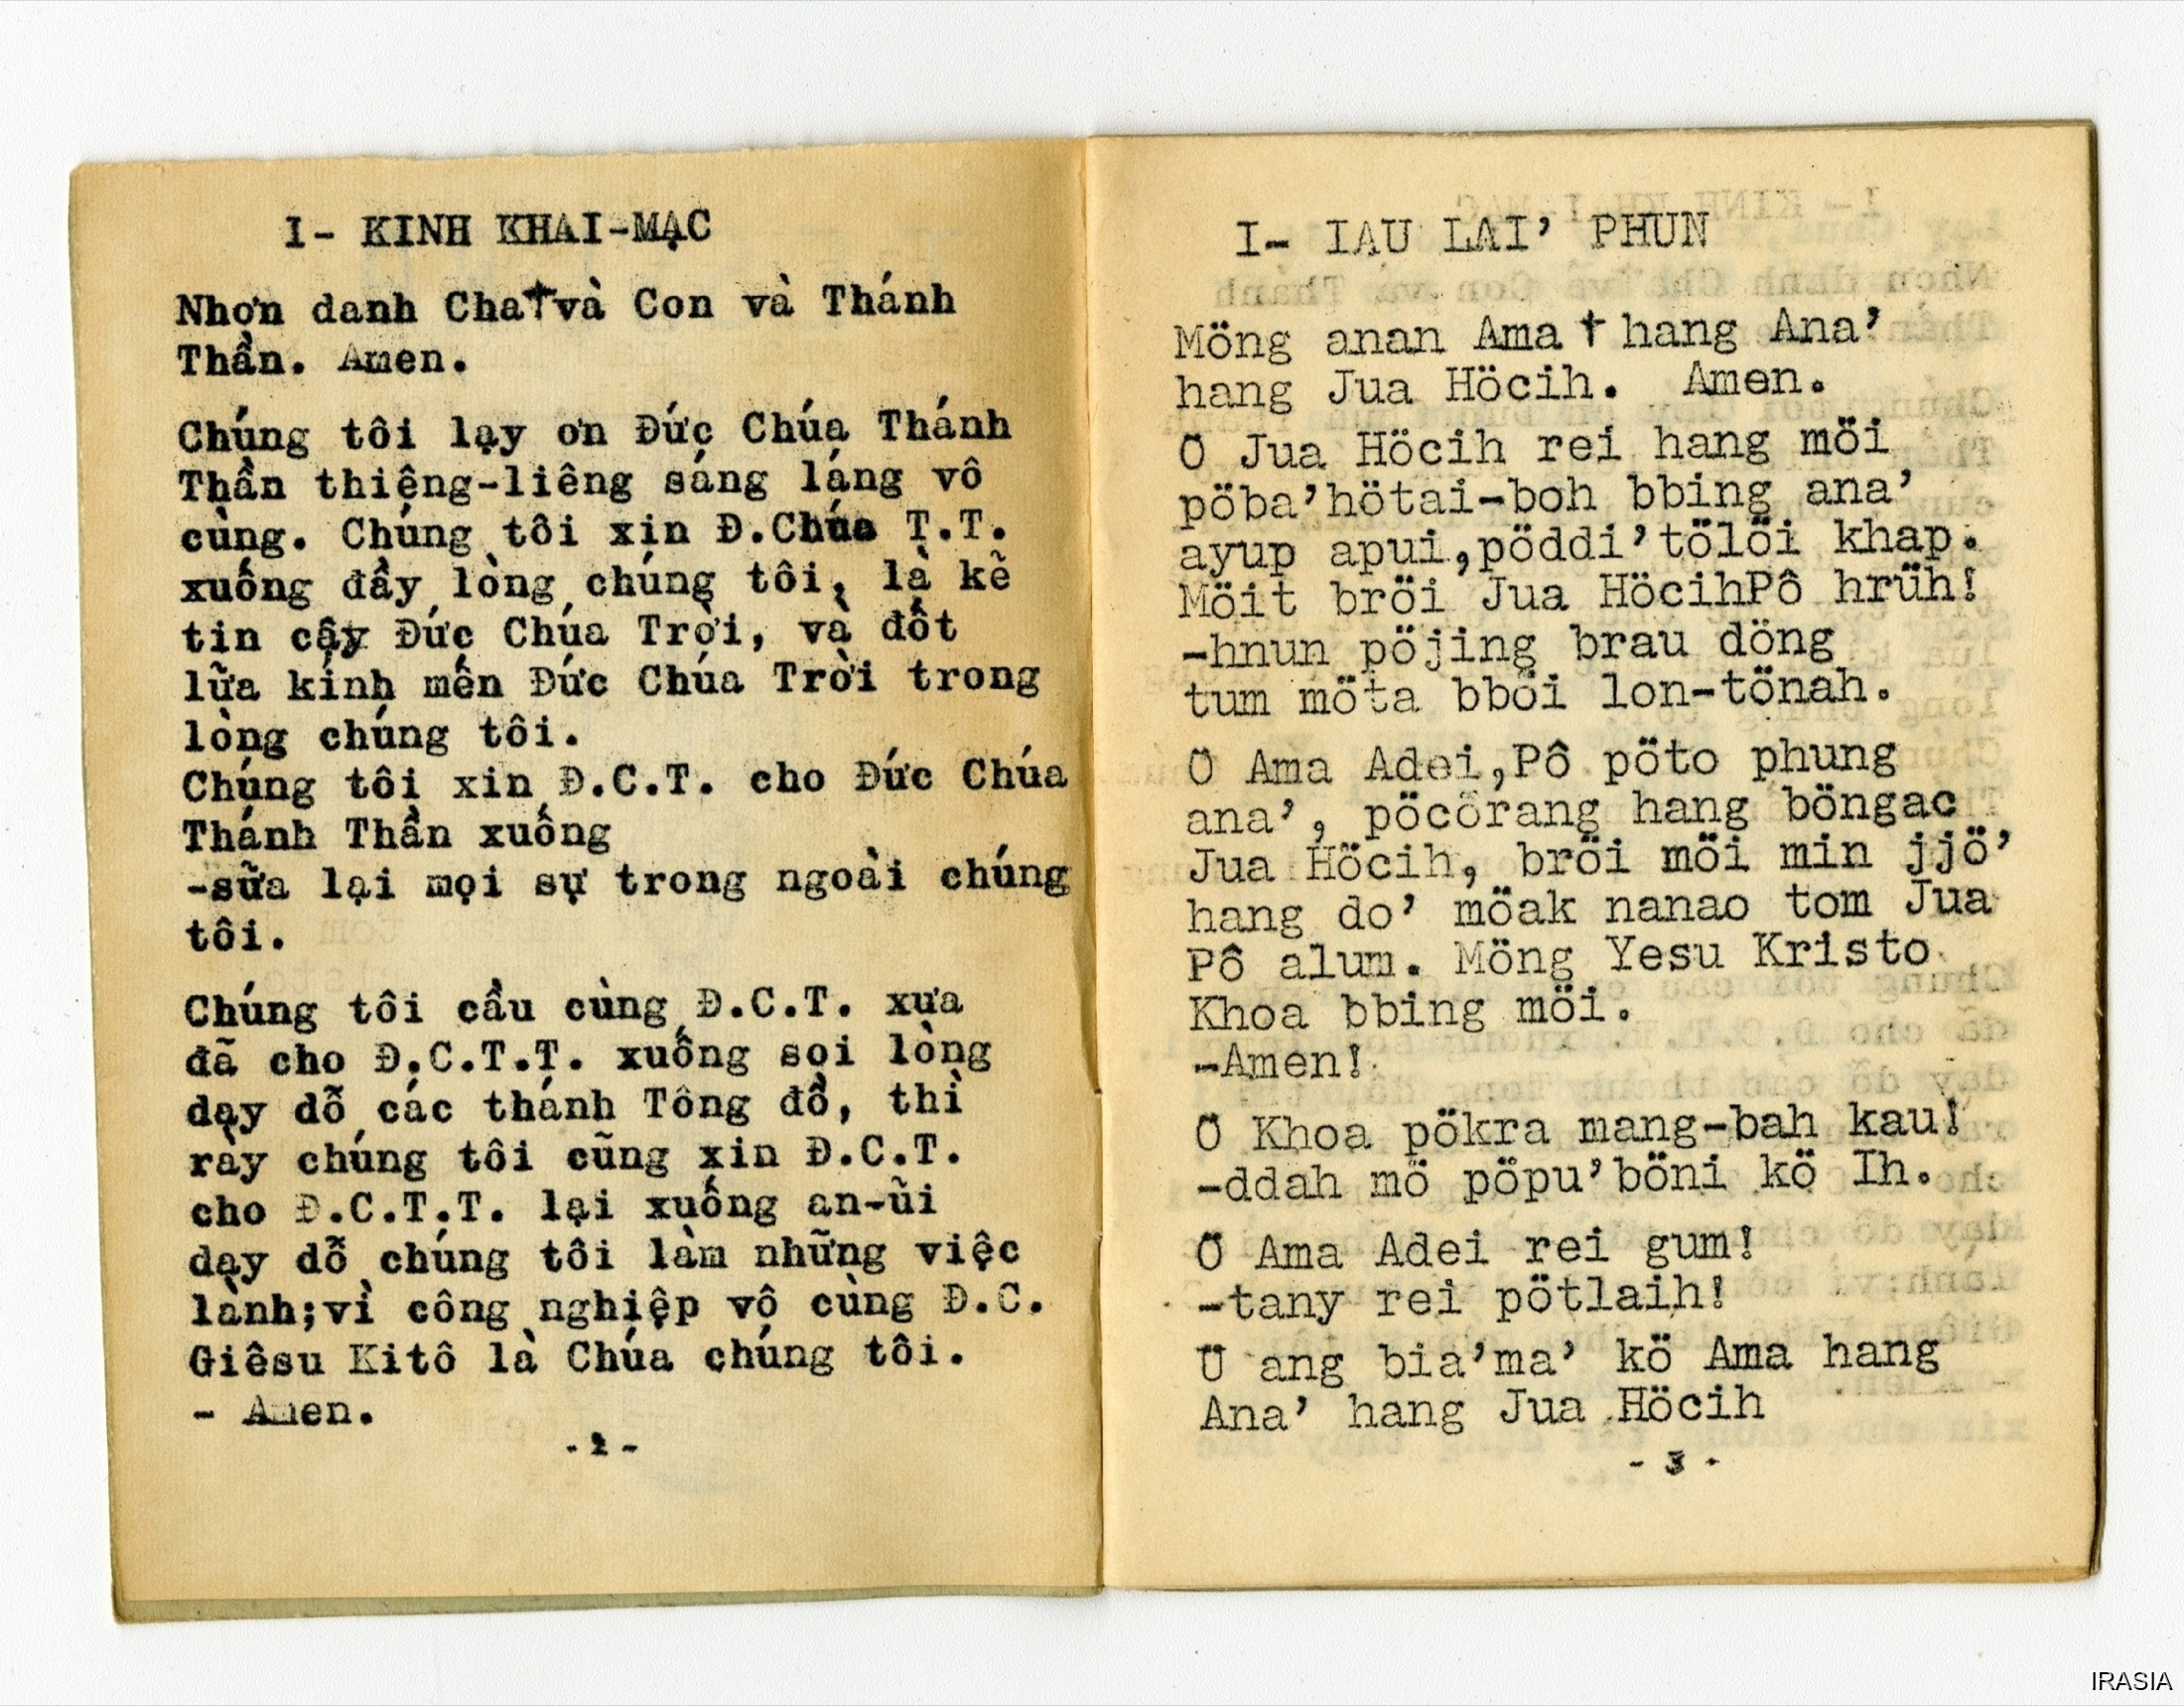 I- KINH KHAI-MẠC
Nhơn danh Cha†và Con và Thánh
Thần. Amen.
Chúng tôi lạy ơn Đức Chúa Thánh
Thần thiêng-liêng sáng láng vô
cùng. Chúng tôi xin Đ.Chúa T.T.
xuống đầy lòng chúng tôi, là kẽ
tin cậy Đức Chúa Trời, và đốt
lữa kính mến Đức Chúa Trời trong
lòng chúng tôi.
Chúng tôi xin Đ.C.T. cho Đức Chúa
Thánh Thần xuống
-sữa lại mọi sự trong ngoài chúng
tôi.
Chúng tôi cầu cùng Đ.C.T. xưa
đã cho Đ.C.T.T. xuống soi lòng
dạy dỗ các thánh Tông đồ, thì
rày chúng tôi cũng xin Đ.C.T.
cho Đ.C.T.T. lại xuống an-ũi
dạy dỗ chúng tôi làm những việc
lành;vì công nghiệp vô cùng Đ.C.
Giêsu Kitô là Chúa chúng tôi.
- Amen.
-2-
I- IAU LAI' PHUN
Möng anan Ama † hang Ana'
hang Jua Höcih. Amen.
Ö Jua Höcih rei hang möi
pöba'hötai-boh bbing ana'
ayup apui,pöddi'tölöi khap.
Möit bröi Jua HöcihPô hrüh!
-hnun pöjing brau döng
tum möta bböi lon-tönah.
Ö Ama Adei,Pô pöto phung
ana', pöcörang hang böngac
Jua Höcih, bröi möi min jjö'
hang do' möak nanao tom Jua
Pô alum. Möng Yesu Kristo
Khoa bbing möi.
-Amen!
Ö Khoa pökra mang-bah kau!
-ddah mö pöpu'böni kö Ih.
Ö Ama Adei rei gum!
-tany rei pötlaih!
Ü ang bia'ma' kö Ama hang
Ana' hang Jua Höcih
-3-
IRASIA